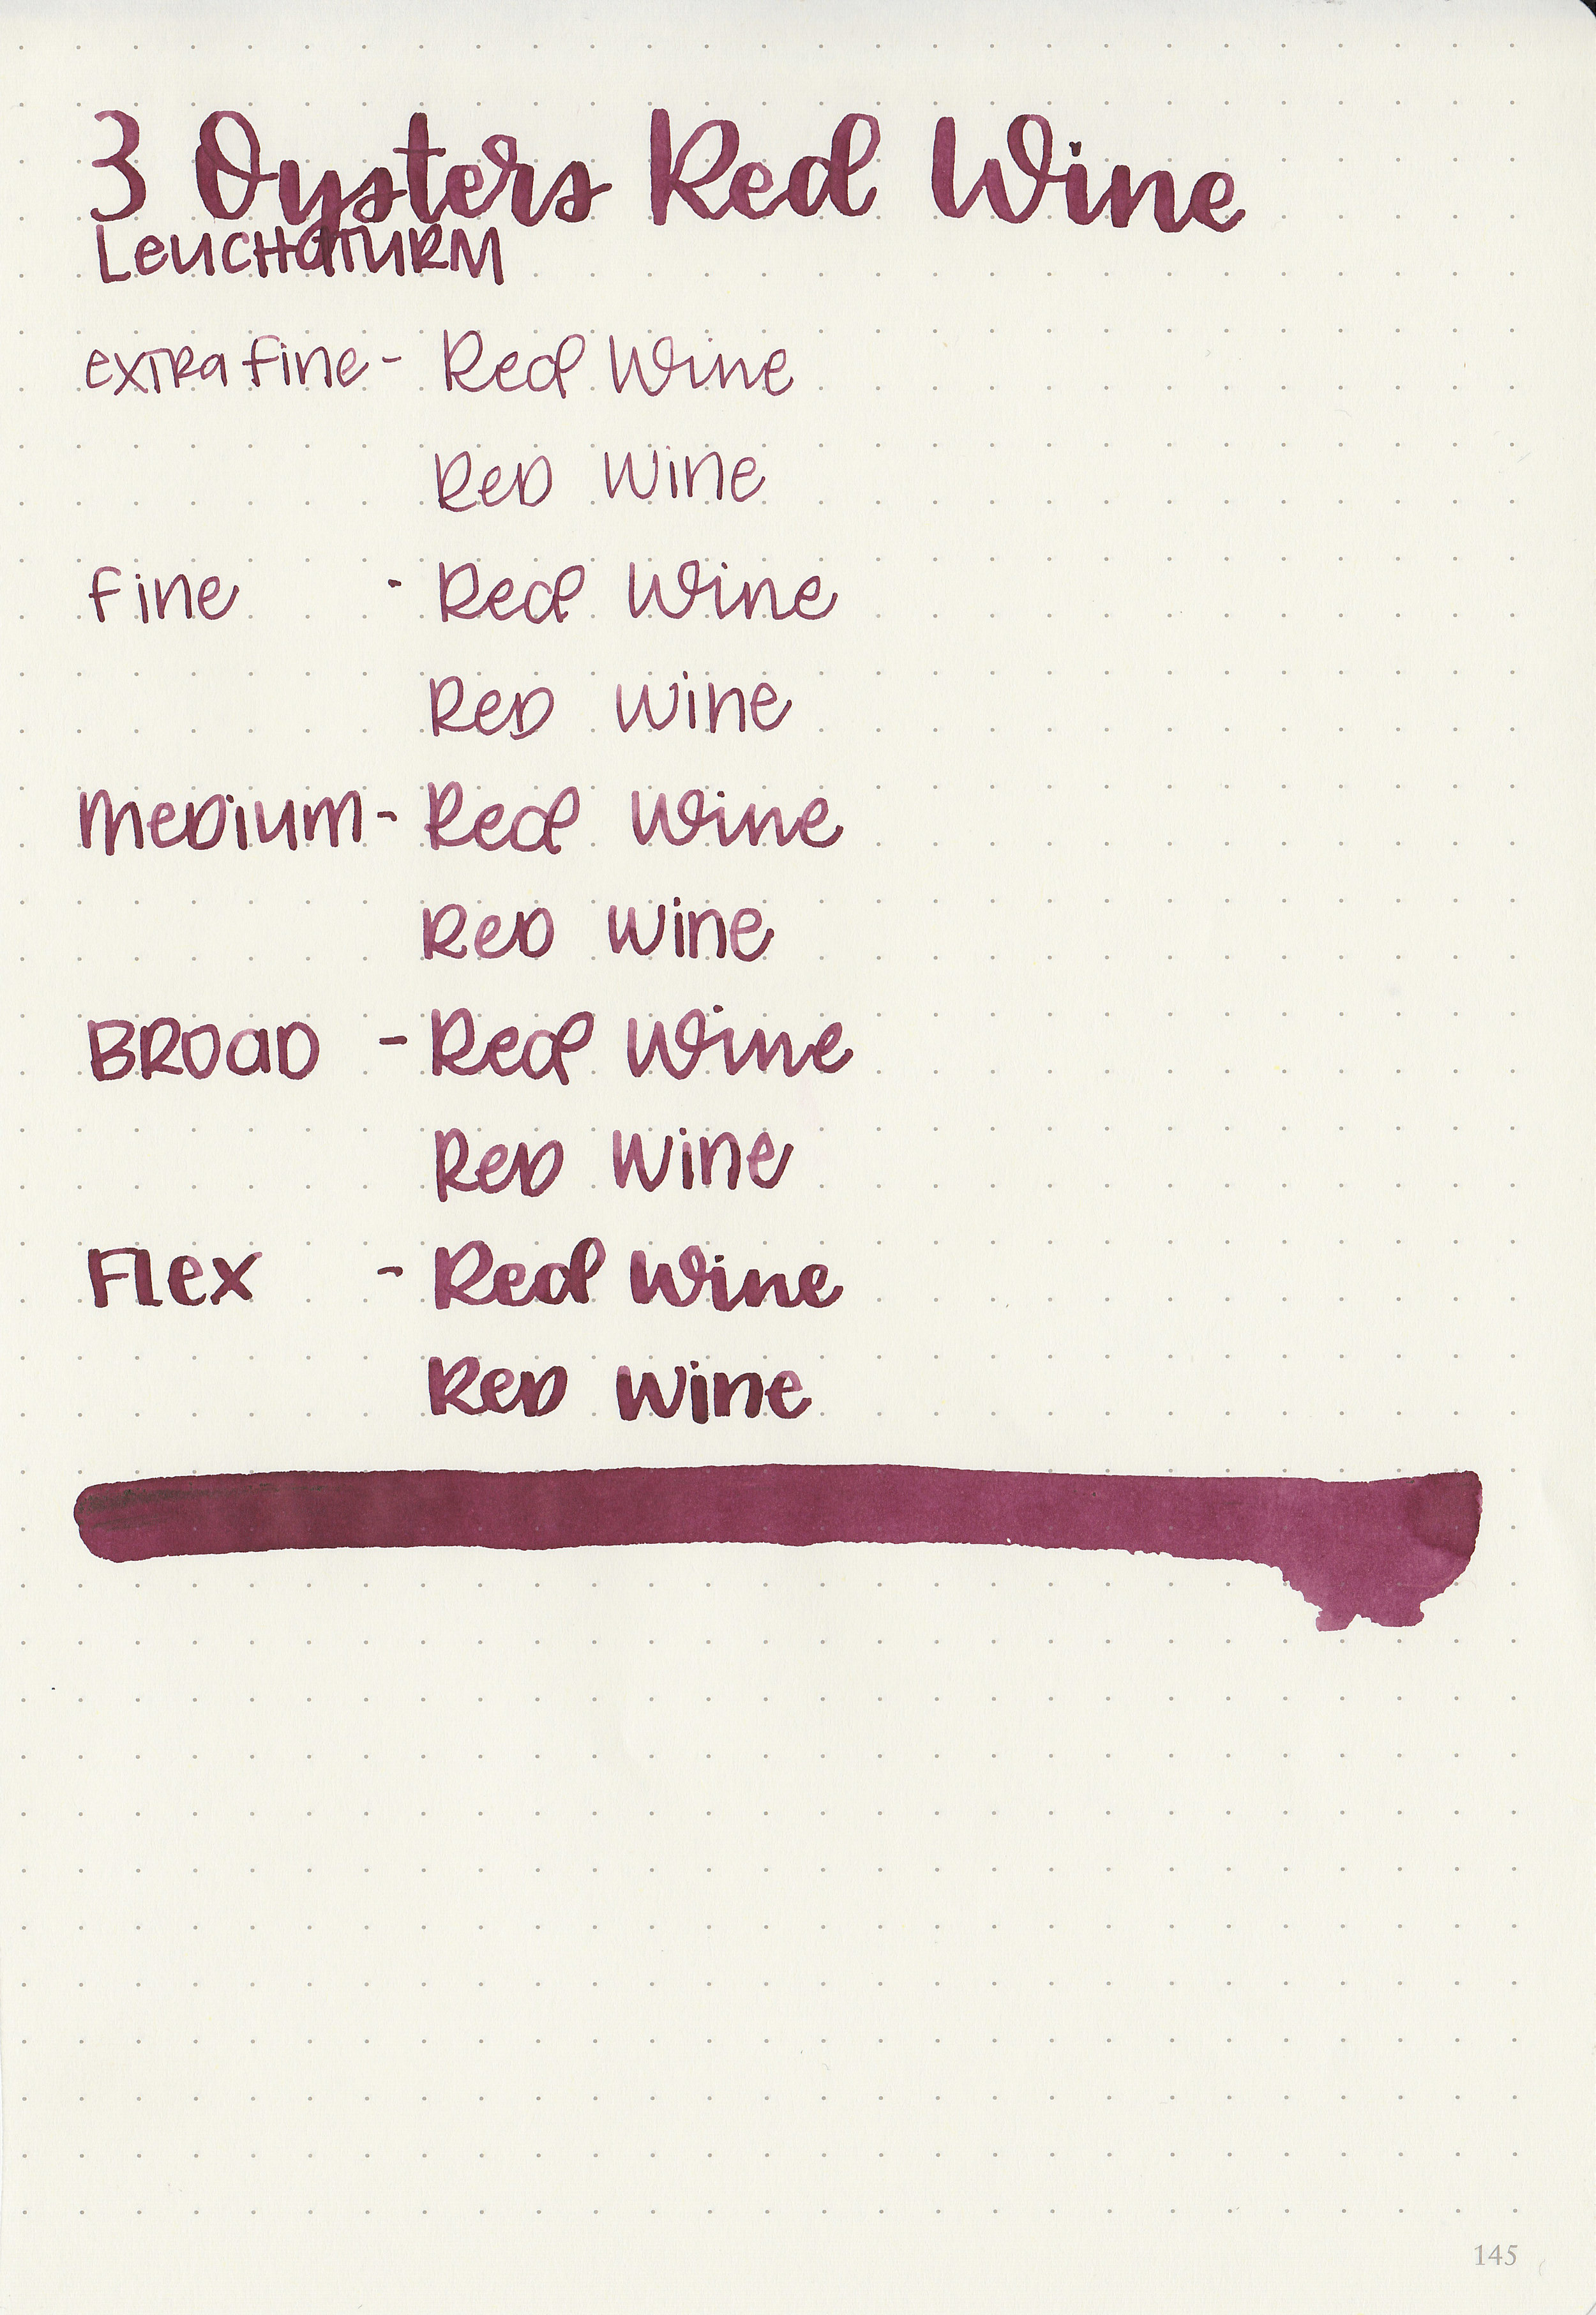 3 Oysters Red Wine
Leuchtturm
extra fine - Red Wine
Red Wine
fine - Red Wine
Red Wine
medium - Red Wine
Red Wine
Broad - Red Wine
Red Wine
Flex - Red Wine
Red Wine
145